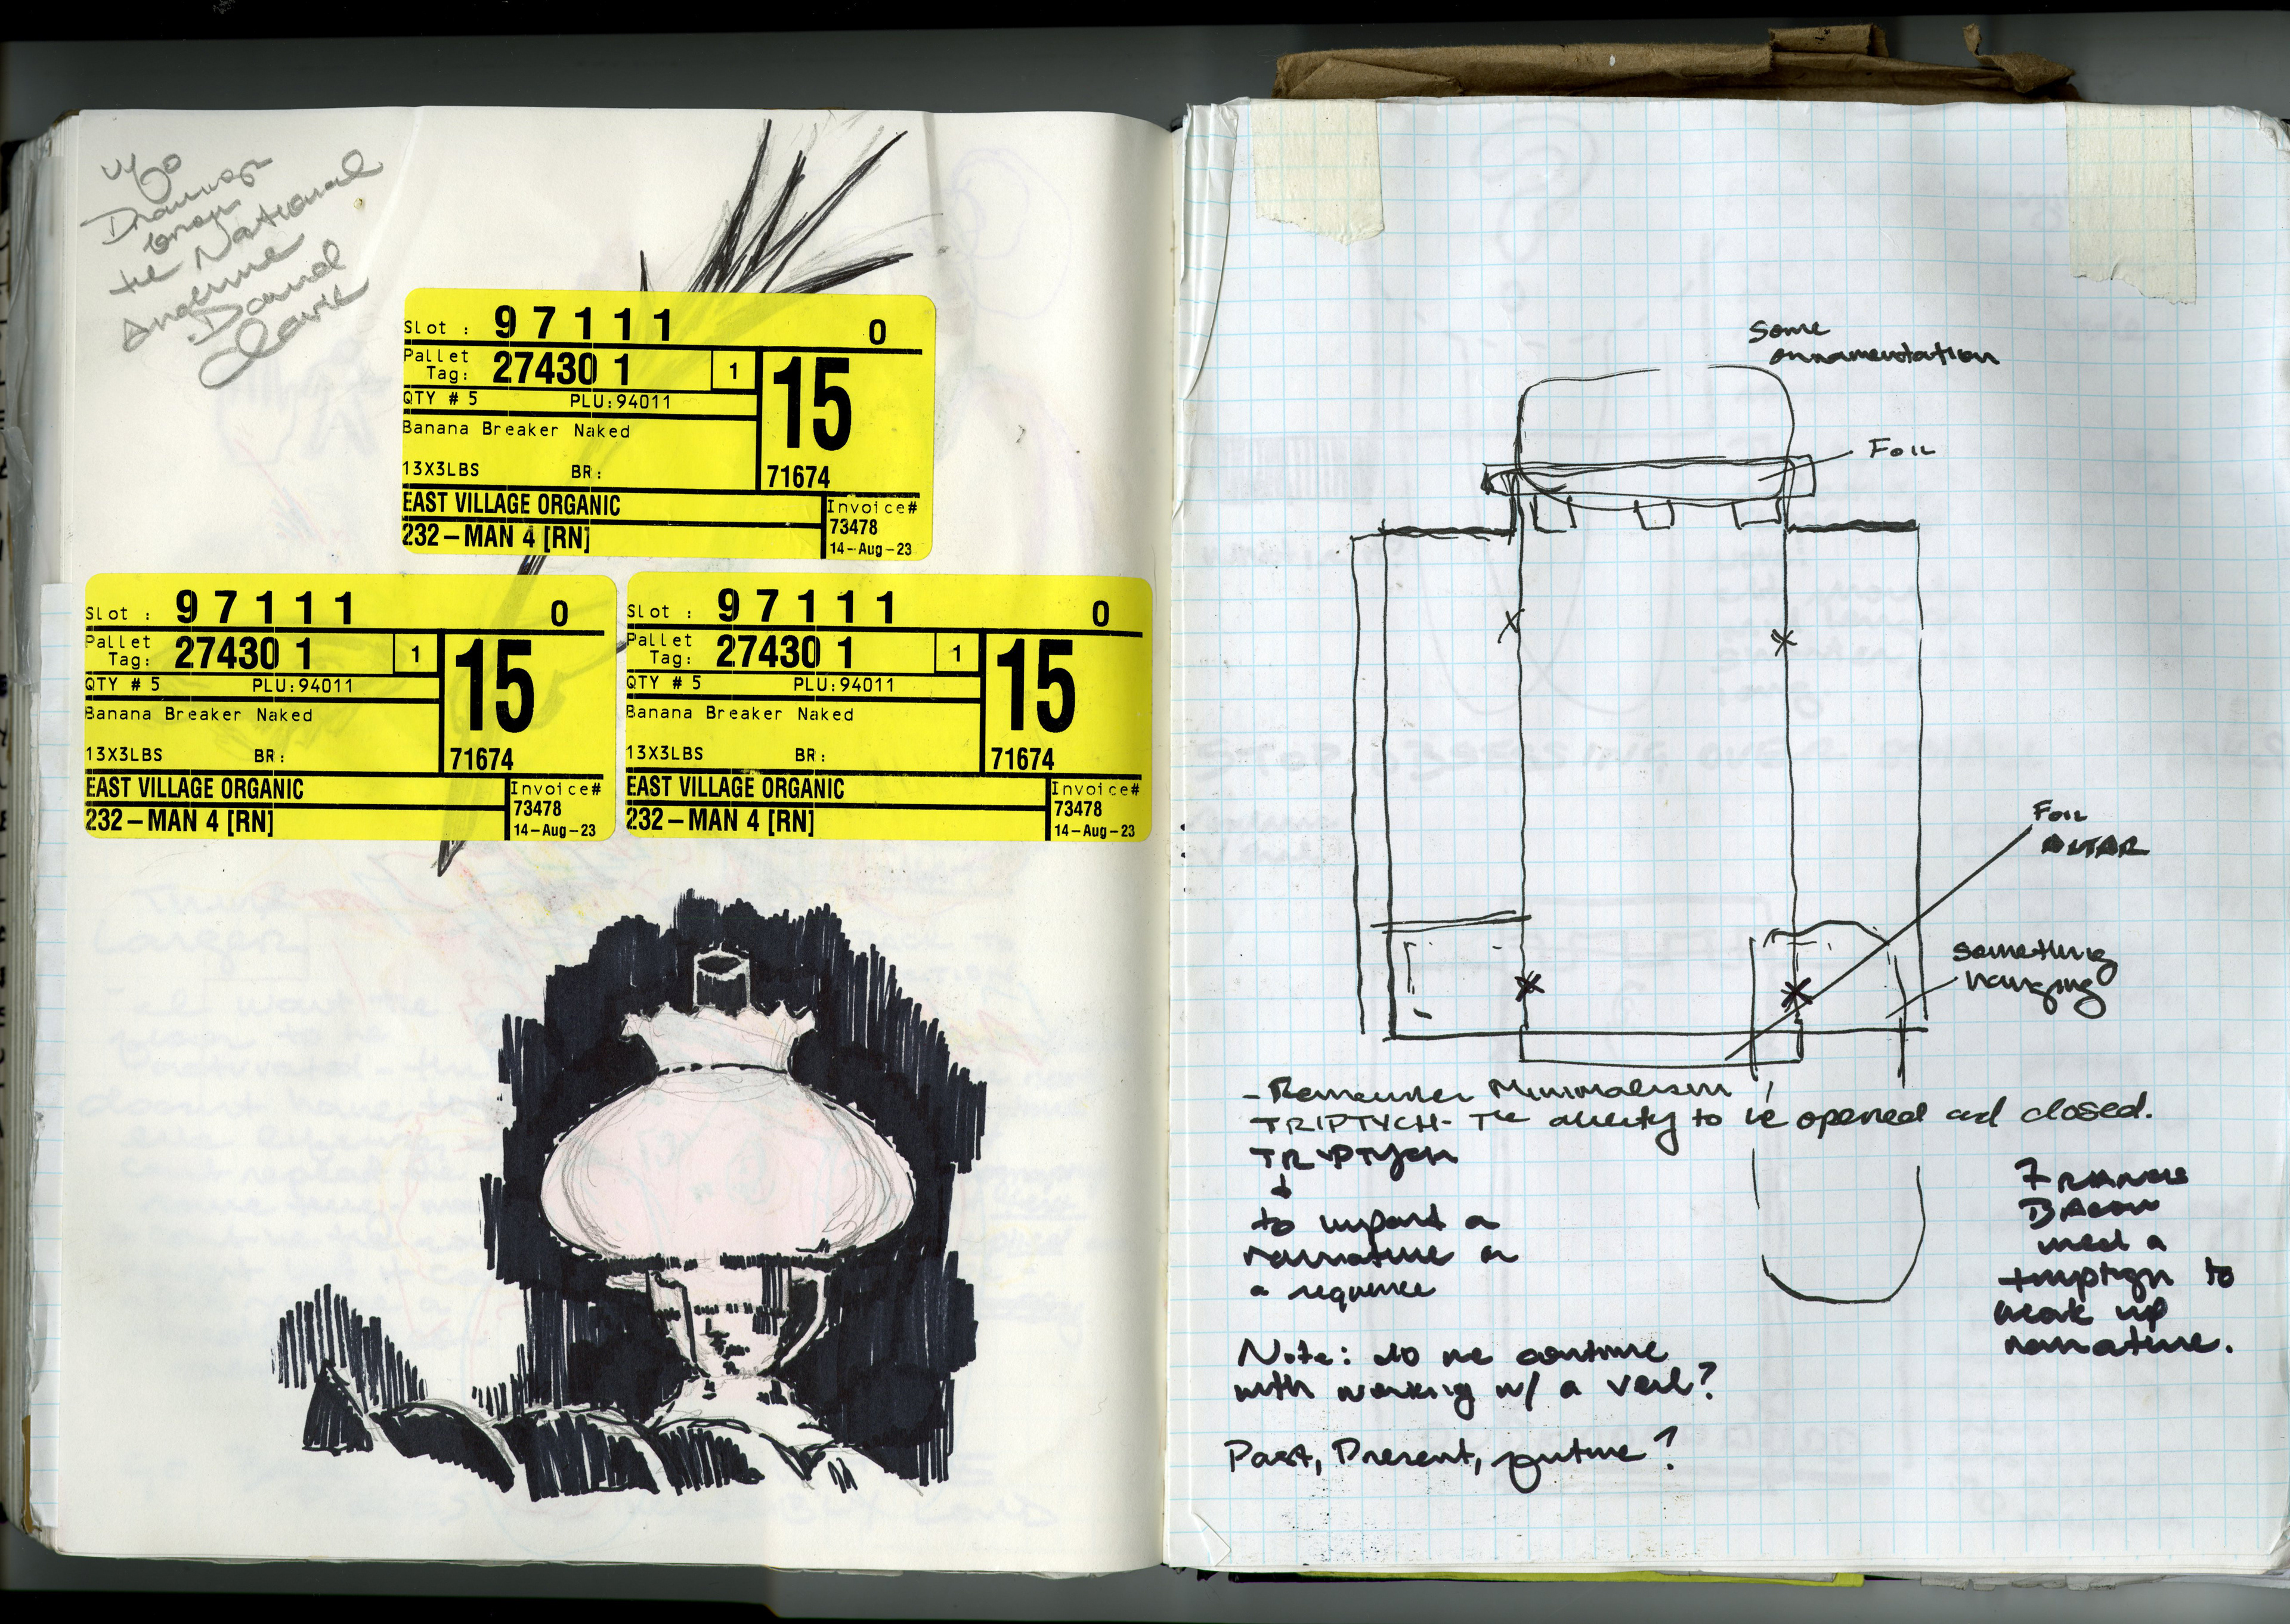 Drawings
from
the National
Academy
David
Slot : 9 7 1 1 1 0
Pallet
Tag: 27430 1 1 15
QTY # 5 PLU:94011
Banana Breaker Naked
13X3LBS BR: 71674
EAST VILLAGE ORGANIC Invoice#
73478
232-MAN 4 [RN] 14-Aug-23
Slot : 9 7 1 1 1 0
Pallet
Tag: 27430 1 1 15
QTY # 5 PLU:94011
Banana Breaker Naked
13X3LBS BR: 71674
EAST VILLAGE ORGANIC Invoice#
73478
232-MAN 4 [RN] 14-Aug-23
Slot : 9 7 1 1 1 0
Pallet
Tag: 27430 1 1 15
QTY # 5 PLU:94011
Banana Breaker Naked
13X3LBS BR: 71674
EAST VILLAGE ORGANIC Invoice#
73478
232-MAN 4 [RN] 14-Aug-23
Some
ornnamentation
Foil
Foil
ALTAR
Something
hanging
- Remember Minimalism
TRIPTYCH- The ability to be opened and closed.
TRIPTYCH
to impart a
narrative or
a sequence
Francis
Bacon
used a
triptych to
break up
narrative.
Note: do we continue
with working w/ a veil?
Past, Present, future?